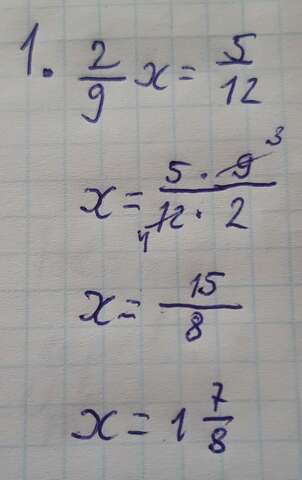 1. 2/9 x = 5/12
x = 5 · 9 3 / 12 4 · 2
x = 15/8
x = 1 7/8